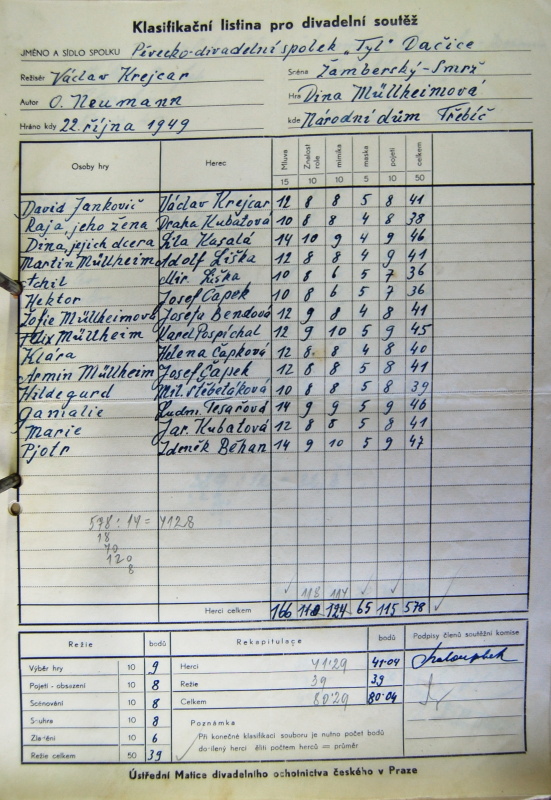 Klasifikační listina pro divadelní soutěž
JMÉNO A SÍDLO SPOLKU Pěvecko-divadelní spolek „Tyl“ Dačice
Režisér Václav Krejcar Scéna Žamberský-Smrž
Autor O. Neumann Hra Dina Müllheimová
Hráno kdy 22. října 1949 kde Národní dům Třebíč
Osoby hry Herec Mluva Znalost role mimika maska pojetí celkem
15 10 10 10 10 50
David Jankovič Václav Krejcar 12 8 8 5 8 41
Raja, jeho žena Draha Kubátová 10 8 8 4 8 38
Dina, jejich dcera Líla Kasalá 14 10 9 4 9 46
Martin Müllheim Adolf Liška 12 8 8 4 9 41
Achil Mir. Liška 10 8 6 5 7 36
Hektor Josef Čapek 10 8 6 5 7 36
Žofie Müllheimová Josefa Bendová 12 9 8 4 8 41
Felix Müllheim Karel Pospíchal 12 9 10 5 9 45
Klára Helena Čapková 12 8 8 4 8 40
Armin Müllheim Josef Čapek 12 8 8 5 8 41
Hildegard Mil. Štěbetáková 10 8 8 5 8 39
Gamalie Ludm. Tesařová 14 9 9 5 9 46
Marie Jar. Kubátová 12 8 8 5 8 41
Pjotr Zdeněk Běhan 14 9 10 5 9 47
578 : 14 = 4128
18
40
120
8
118 114
Herci celkem 166 124 65 115 578
Režie bodů Rekapitulace bodů Podpisy členů soutěžní komise
Výběr hry 10 9 Herci 41·29 41·04
Pojetí - obsazení 10 8 Režie 39 39
Scénování 10 8 Celkem 80·29 80·04
Souhra 10 8 Poznámka
Zladění 10 6 Při konečné klasifikaci souboru je nutno počet bodů
Režie celkem 50 39 docílený herci děliti počtem herců = průměr
Ústřední Matice divadelního ochotnictva českého v Praze